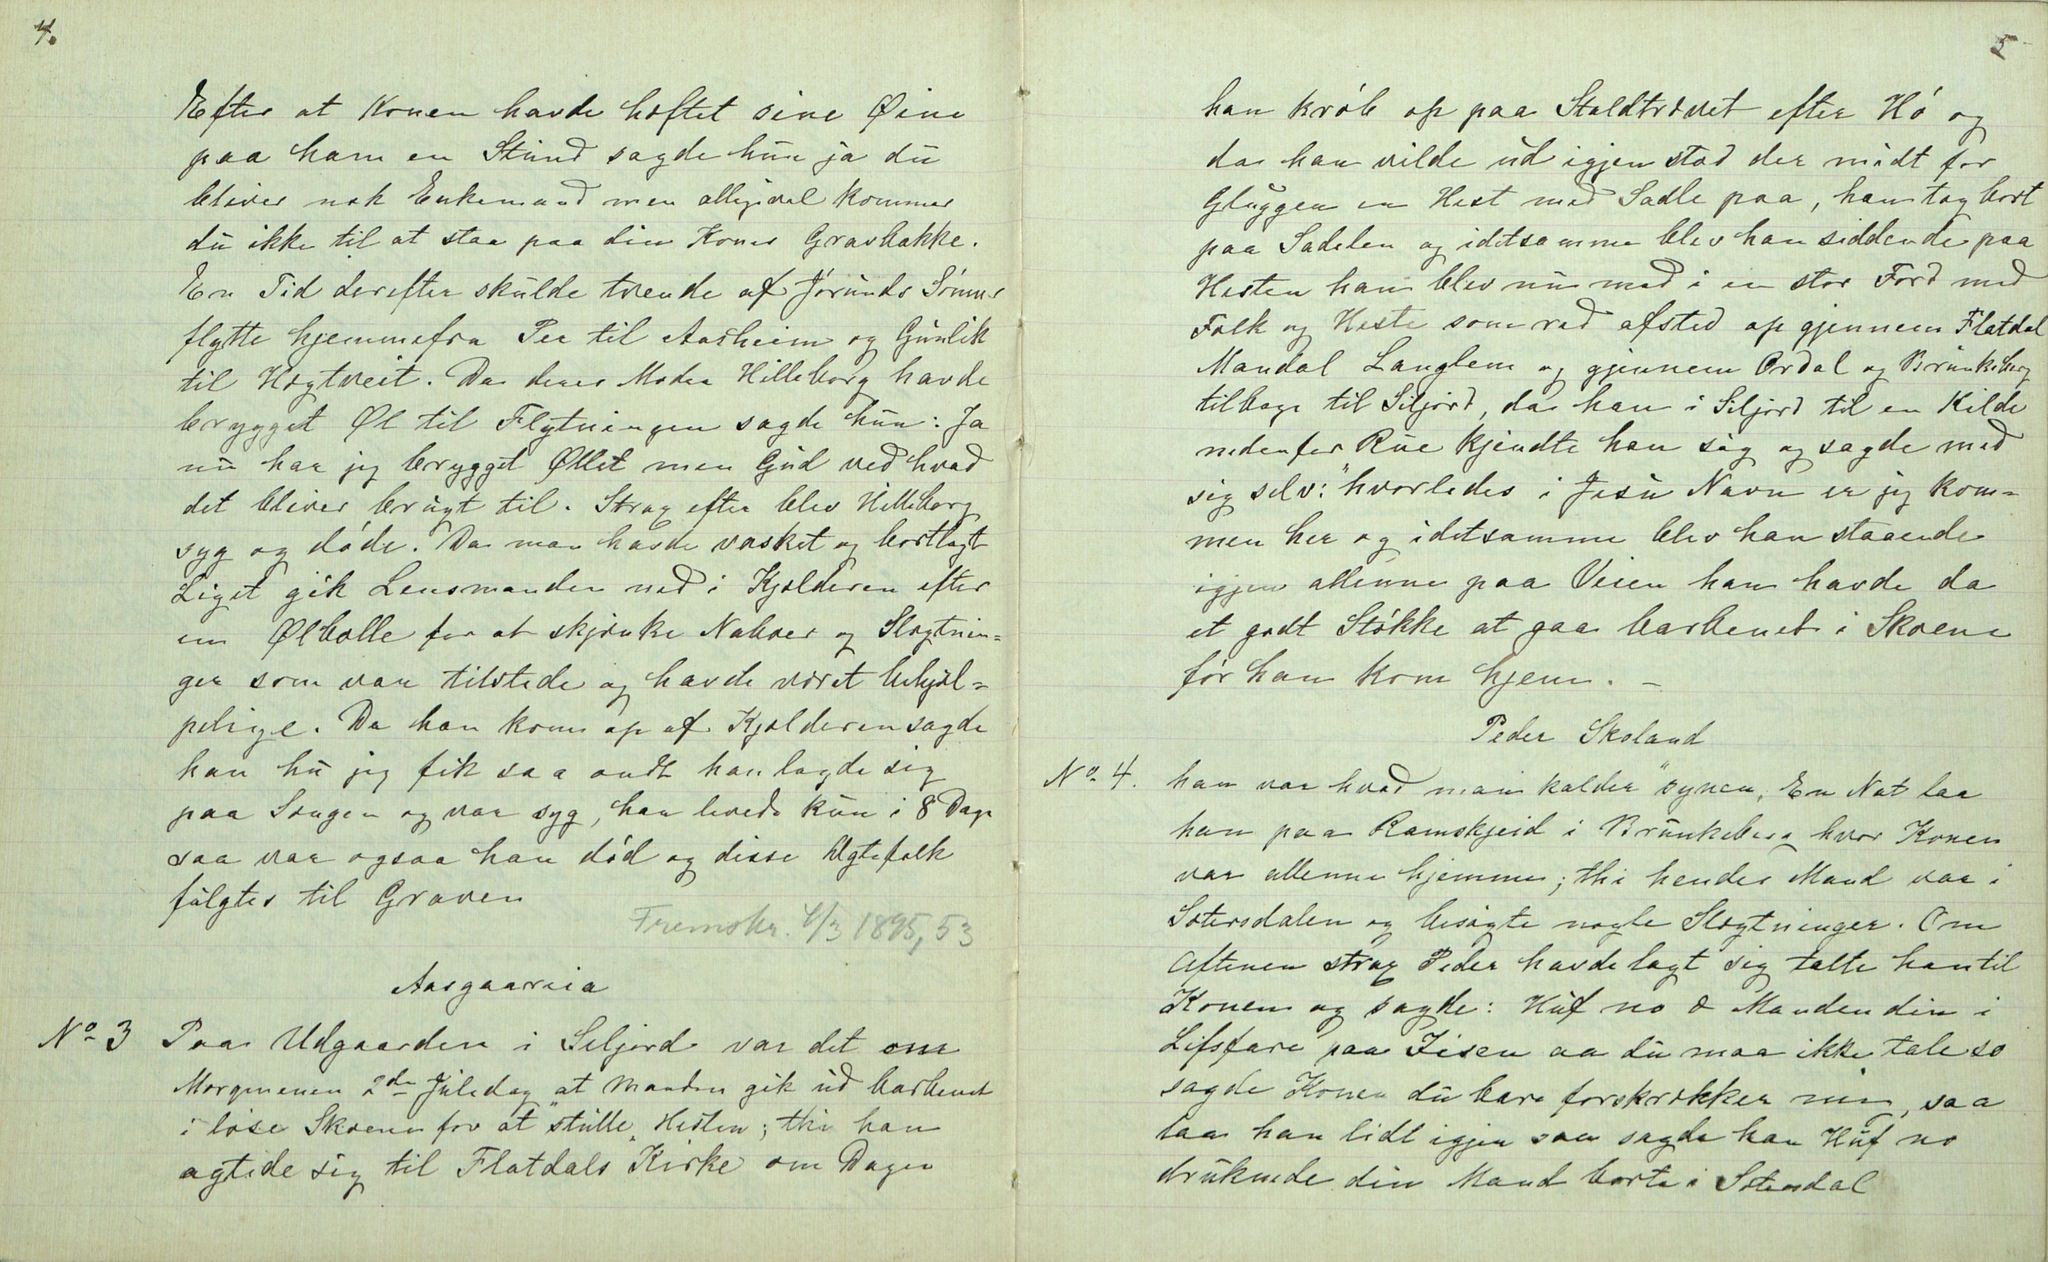 4.
Efter at Konen havde hæftet sine Øine
paa ham en Stund sagde hun ja du
bliver nok Enkemand men alligevel kommer
du ikke til at staa paa din Kones Gravbakke.
En Tid derefter skulde tvende af Jörunds Sönner
flytte hjemmefra Per til Aasheim og Gunlik
til Hægtveit. Da deres Moder Hilleborg havde
brygget Øl til Flytningen sagde hun: Ja
nu har jeg brygget Øllet men Gud ved hvad
det bliver brugt til. Strax efter blev Hilleborg
syg og döde. Da man havde vasket og bortlagt
Liget gik Lensmanden ned i Kjælderen efter
en Ølbolle for at skjænke Naboer og Slægtnin=
ger som var tilstede og havde været behjæl=
pelige. Da han kom op af Kjælderen sagde
han hu jeg fik saa ondt han lagde sig
paa Sengen og var syg, han levede kun i 8 Dage
saa var ogsaa han död og disse Ægtefolk
fulgtes til Graven
Fremskr. 4/3 1895, 53
Aasgaareia
No 3 Paa Utgaarden i Seljord var det om
Morgenenen 2den Juledag at Manden gik ud barbenet
i löse Skoene for at "stulle" Hesten; thi han
agtede sig til Flatdals Kirke om Dagen
5
han kröb op paa Staldtrævet efter Hö og
da han vilde ud igjen stod der midt for
Gluggen en Hest med Sadle paa, han tog bort
paa Sadelen og idetsamme blev han siddende paa
Hesten han blev nu med i en stor Færd med
Folk og Heste som red afsted op gjennem Flatdal
Mandal Langlem og gjennem Ordal og Brunkeberg
tilbage til Seljord, da han i Seljord til en Kilde
nedenfor Rue kjendte han sig og sagde med
sig selv: "hvorledes i Jesu Navn er jeg kom=
men her og idetsamme blev han staaende
igjen allene paa Veien han havde da
et godt Stökke at gaa barbenet i Skoene
för han kom hjem. –
Peder Skoland
No 4. han var hvad man kalder "synen, En Nat laa
han paa Ramskjeid i Brunkeberg hvor Konen
var allenne hjemme; thi hendes Mand var i
Sætersdalen og besögte nogle Slægtninger. Om
Aftenen strax Peder havde lagt sig talte han til
Konen og sagde: Huf no æ Manden din i
Lifsfare paa Jisen aa du maa ikke tale so
sagde Konen du bare forskrækker min, saa
laa han lidt igjen saa sagde han Huf no
druknede din Mand borte i Sætersdal